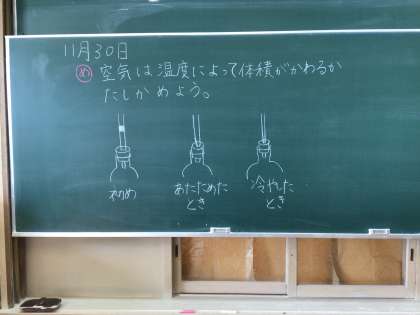 11月30日
め 空気は温度によって体積がかわるか
たしかめよう。
初め
あたためた
とき
冷やした
とき